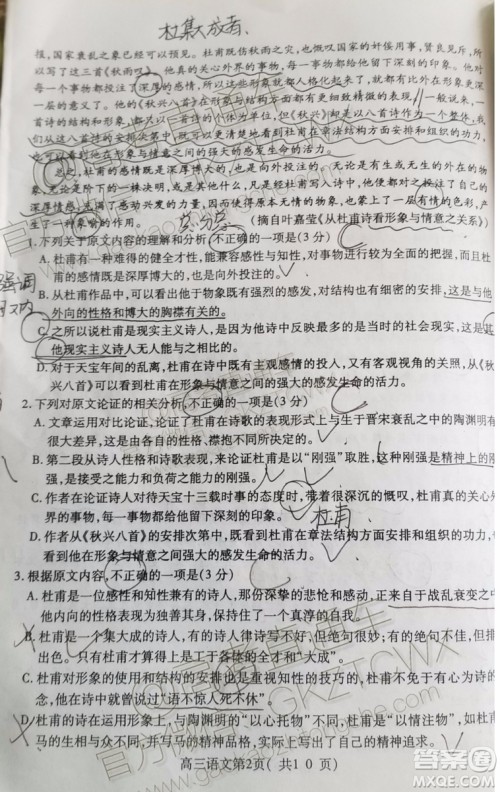 杜集大成者
强,国家衰乱之象已经可以预见。杜甫既伤秋雨之灾,也慨叹国家的奸佞用事,贤良见斥,所以
写了这三首《秋雨叹》。他真的关心外界的事情,每一事物都给他留下了深刻的印象。当他把
每一个事物赋予了深厚的感情,所以这些形象就都人格化起来了,可以使人在形象以外更深
一层的意义了。他的《秋兴八首》在形象与结构方面都有更细致精微的表现。一般说来,一
首诗的结构和形象自然都以一首诗的个体为单位,但《秋兴》,却是以八首诗作为一个整体。
我们从这八首诗的安排次第中,就可以更清楚地看到杜甫在章法结构方面安排和组织的功力,
也可以看到他在形象与情意之间的强大的感发生命的活力。
总之,杜甫的感情既是深厚博大的,也是向外投注的。无论是有生或无生的外在的景物,
无论是形象阶下的一株决明,或是其他什么风景,只要写到诗中,就都带着他自己的强大的
深厚情意,都形成了感动兴发的力量,因而使大自然中的景物形象,在他的诗中产生了一种
意象的喻的作用。
(摘自叶嘉莹《从杜甫诗看形象与情意之关系》)
1.下列关于原文内容的理解和分析,不正确的一项是(3分)
A.杜甫有一种难得的健全才性,他能够集大成,与他对事物进行较为全面的把握,而且
杜甫的感情既是深厚博大的,也是向外投注的。
B.从杜甫作品中,可以看出他于物象既观察敏锐,对结构也有细密的安排,这与其感情
外向的性格和博大的胸襟有关的。
C.之所以说杜甫是现实主义诗人,是因为他的诗中反映了当时的历史和社会,这是其
他现实主义诗人无人能与之相比的。
D.对于天宝年间的离乱,杜甫不仅同情人民疾苦,也慨叹国家的奸佞用事,从他的《秋
兴八首》可以看到杜甫在形象与情意之间的强大的感发生命的活力。
2.下列对原文论证的相关分析,不正确的一项是(3分)
A.文章运用对比论证,论证了杜甫在诗歌的表现形式上与生于晋宋衰乱之中的陶渊明有
很大差异,这是因为两人在各自的性格、襟抱不同所导致的。
B.第二段从诗人性格和诗歌表现,来说明杜甫是以“刚强”取胜,这种刚强是精神上的刚
强,是接受的能力和负荷之能力的刚强。
C.作者在论证诗人对待天宝十三载时事的态度时,带着很深沉的慨叹,杜甫关心外界的事情,
每一事物都给他留下了深刻的印象。
D.作者从《秋兴八首》的安排次第中,看到了杜甫在章法结构方面安排和组织的功力,以
及他在形象与情意之间强大的感发生命的活力。
3.根据原文内容,不正确的一项是(3分)
A.杜甫是一位感性和知性兼有的诗人,那份深挚的悲怆和感动,正来自于战乱变故中,
他内在的性格表现为独善其身,保持住了一个真淳的自我。
B.杜甫是一个集大成的诗人,有的诗人律诗写不好,但绝句写得好;有的绝句不佳,但排
律很好。只有杜甫才算得上是工于各体的全才和“大成”。
C.杜甫诗之所以在形象的运用和结构的安排也是受到重视的,是因为杜甫有心为诗的观
念,他在诗中就曾说过“语不惊人死不休”。
D.杜甫的诗在运用形象上,与陶渊明的“以心托物”不同,杜甫是“以情注物”,如杜甫咏
马的生相与众不同,并非马的精神,实际上写出了自己的本领抱负。
高三语文第2页(共10页)